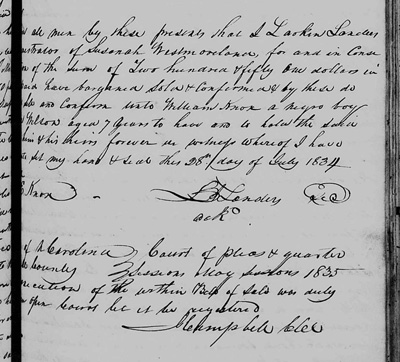 all men by these presents that I Larkin Landers
of Susanah Westmoreland, for and in Con
of the sum of Two hundred & fifty One dollars in
have bargained Sold & Confirmed & by these do
and Confirm unto William Knox a negro boy
aged 7 years to have and to hold the said
& his heirs forever in witness whereof I have
set my hand & seal this 28th day of July 1834
Knox
L Landers
ackd
of N Carolina Court of pleas & quarter
County Sessions May 1835
execution of the within Bill of Sale was duly
open Court let it be registered
Campbell Clk